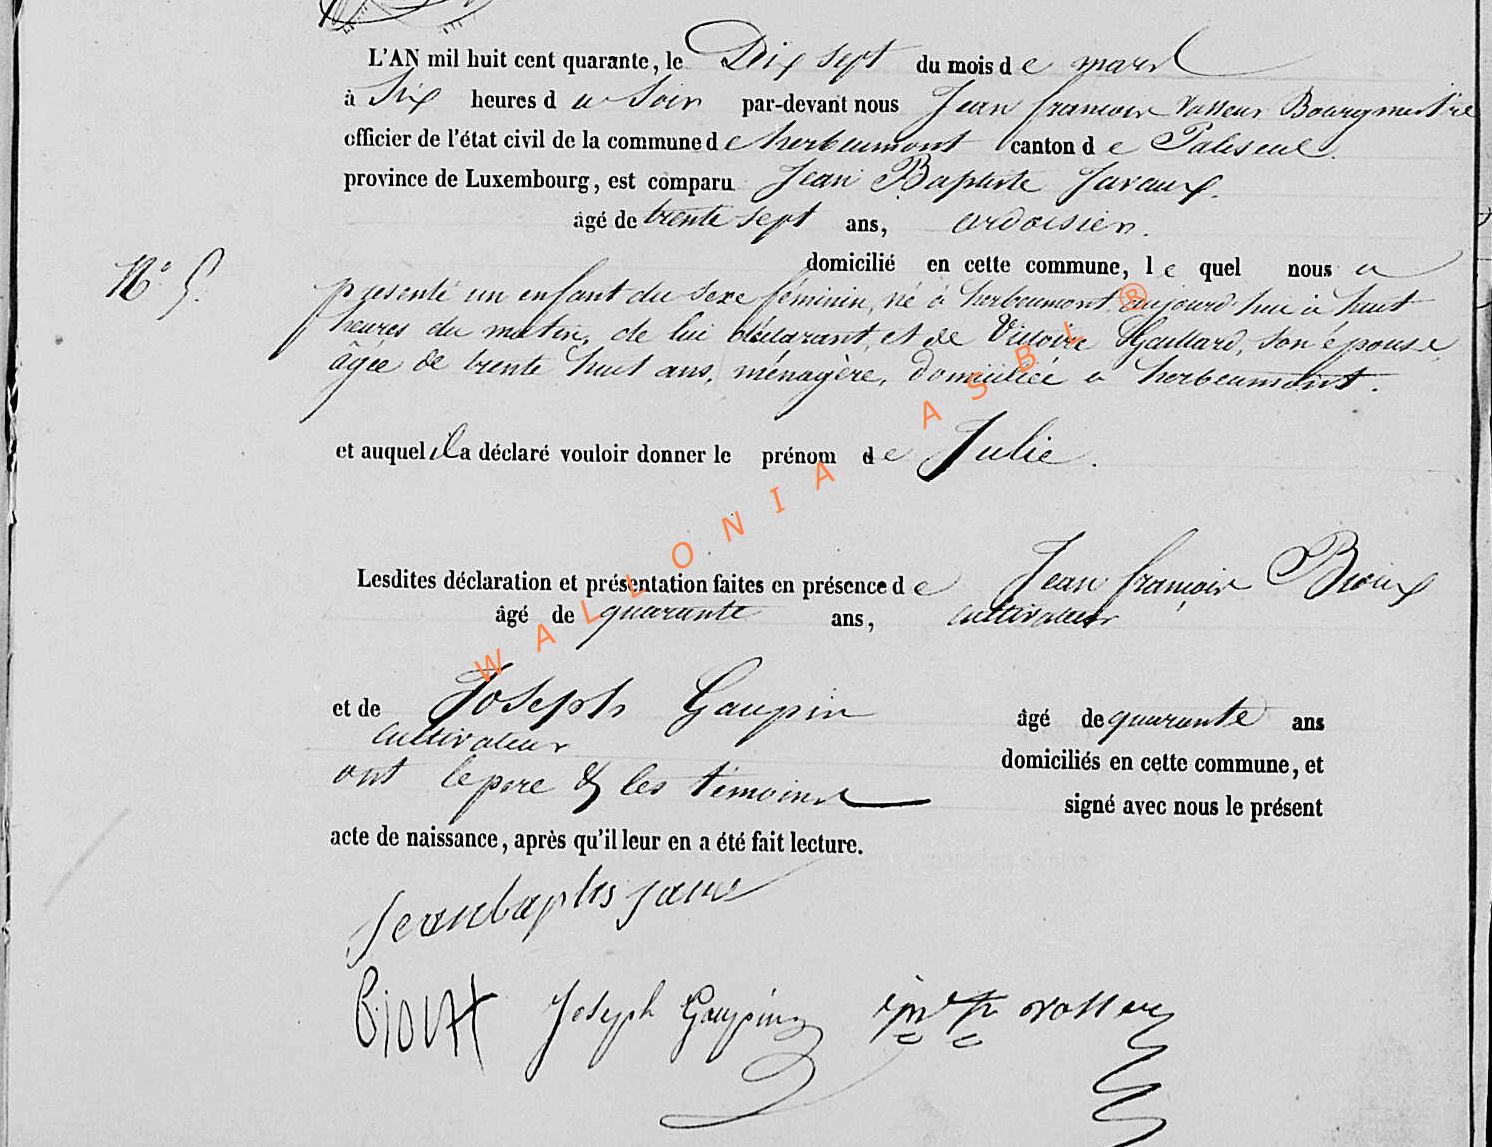 L'AN mil huit cent quarante, le Dix sept du mois de mars
à Six heures du Soir par-devant nous Jean françois Vasseur Bourgmestre
officier de l'état civil de la commune de herbeumont canton de Paliseul.
province de Luxembourg, est comparu Jean Baptiste Javaux.
âgé de trente sept ans, ardoisier.
domicilié en cette commune, le quel nous a
N.° 5.
présenté un enfant du sexe féminin, né à herbeumont aujourd'hui à huit
heures du matin, de lui déclarant, et de Victoire Gaillard, son épouse,
âgée de trente huit ans, ménagère, domiciliée à herbeumont.
et auquel il a déclaré vouloir donner le prénom de Julie.
Lesdites déclaration et présentation faites en présence de Jean françois Bioux
âgé de quarante ans, cultivateur
et de Joseph Gaupin âgé de quarante ans
cultivateur
domiciliés en cette commune, et
ont le pere & les témoins signé avec nous le présent
acte de naissance, après qu'il leur en a été fait lecture.
Bioux Joseph Gaupin
WALLONIA ASBL ®